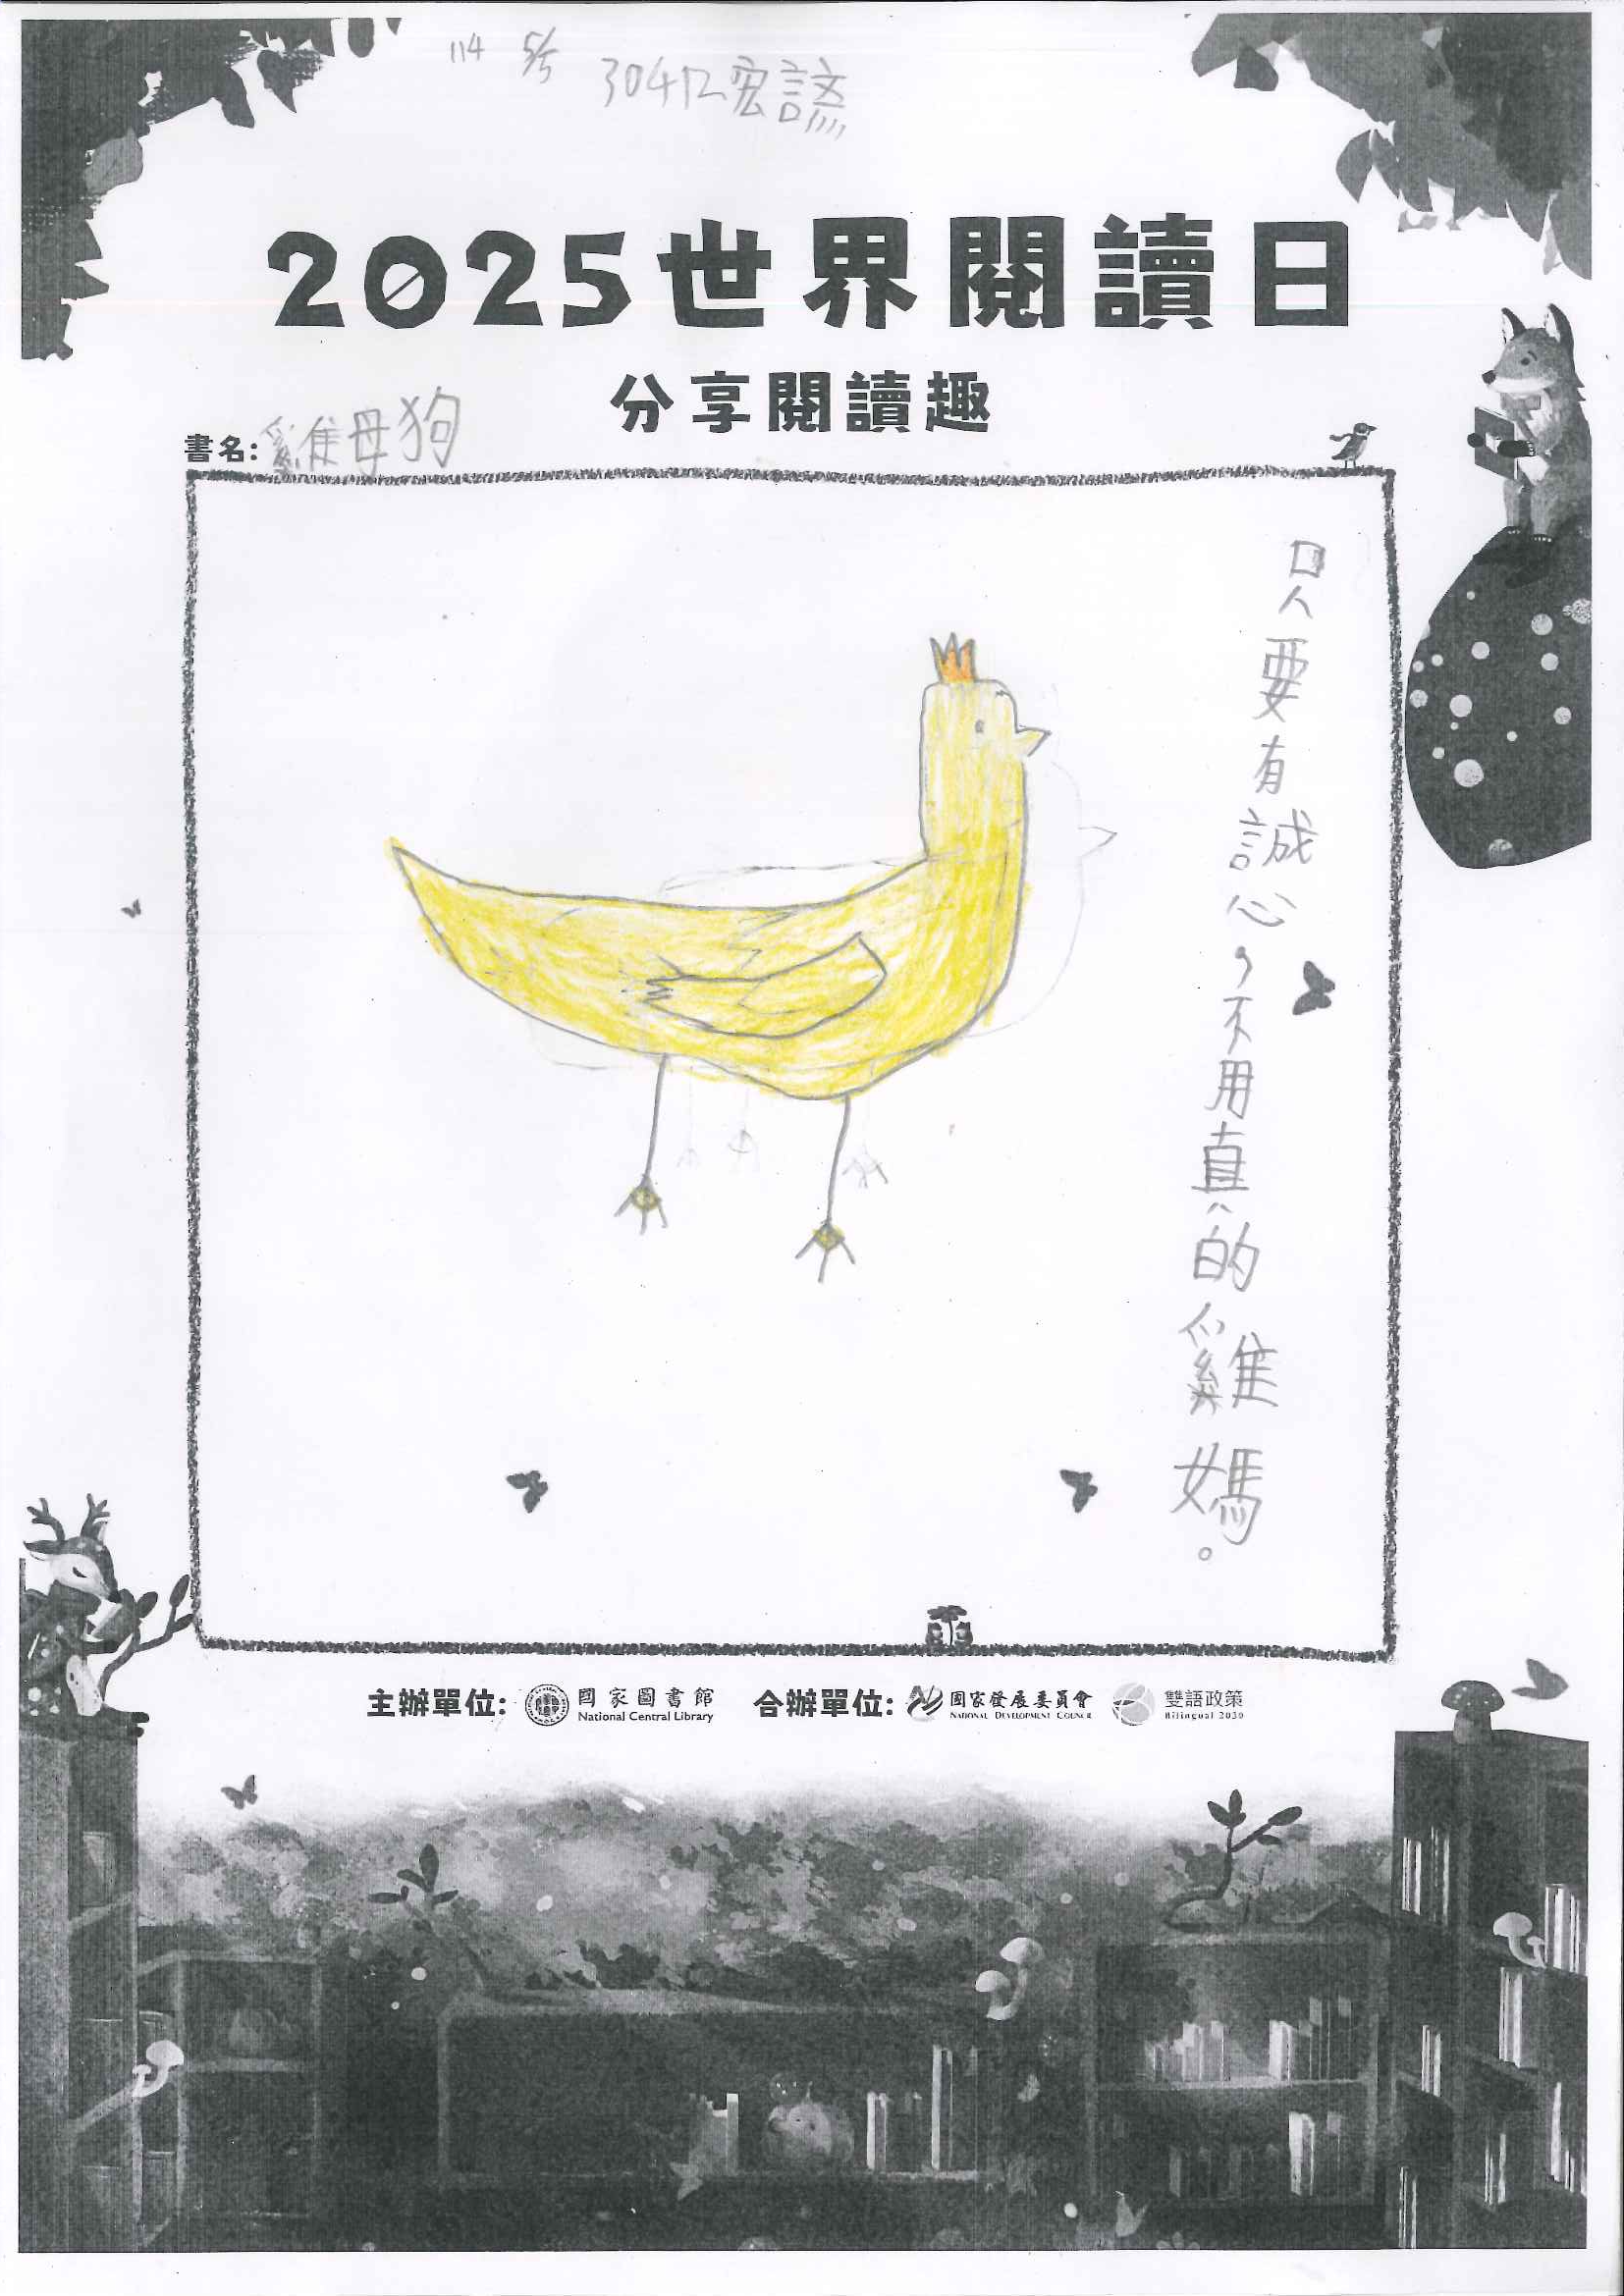 114 5/5 304 宏諺
2025世界閱讀日
分享閱讀趣
書名: 雞母狗
只要有誠心,不用真的雞媽。
主辦單位: 國家圖書館 National Central Library 合辦單位: 國家發展委員會 NATIONAL DEVELOPMENT COUNCIL 雙語政策 Bilingual 2030